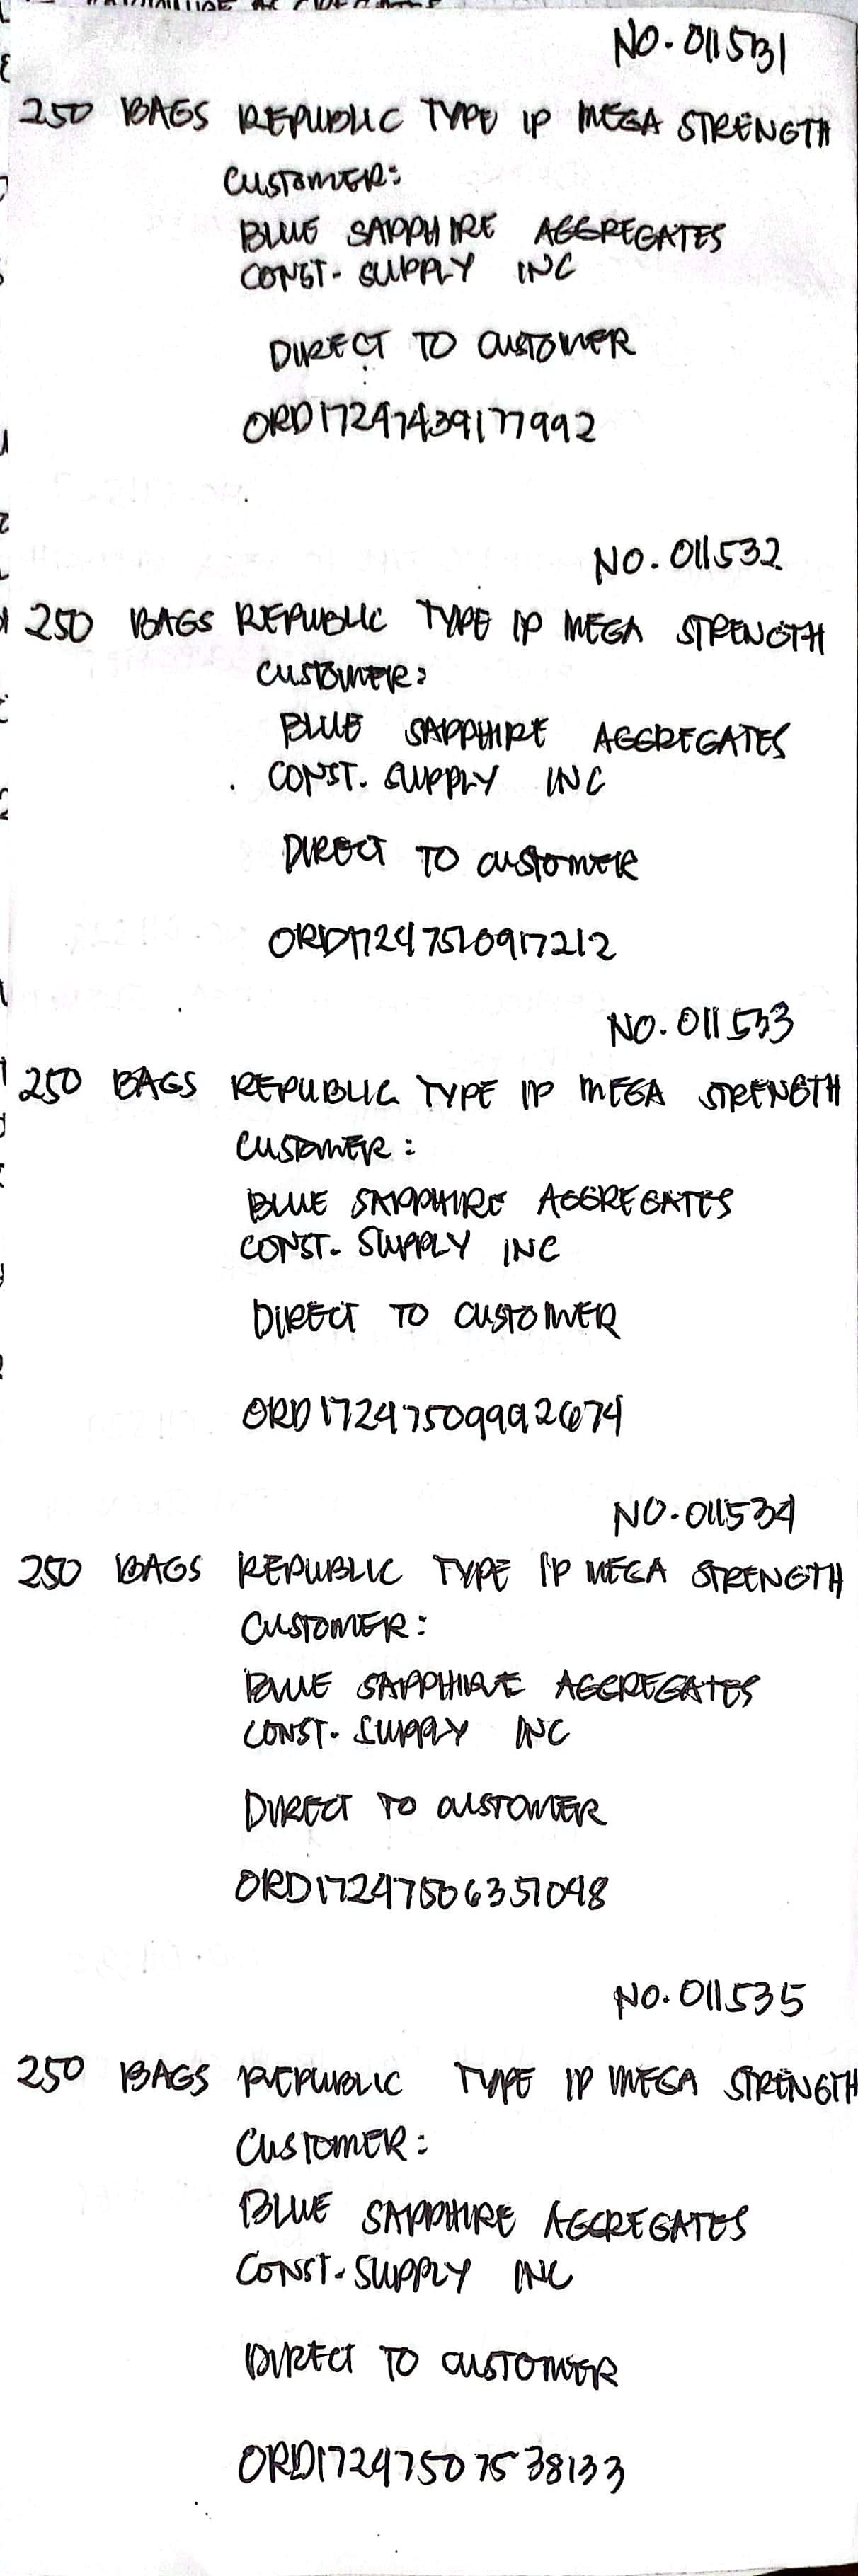 NO. 011531
250 BAGS REPUBLIC TYPE 1P MEGA STRENGTH
CUSTOMER:
BLUE SAPPHIRE AGGREGATES
CONST. SUPPLY INC
DIRECT TO CUSTOMER
ORD17247439177992
NO. 011532
250 BAGS REPUBLIC TYPE 1P MEGA STRENGTH
CUSTOMER:
BLUE SAPPHIRE AGGREGATES
CONST. SUPPLY INC
DIRECT TO CUSTOMER
ORD17247510917212
NO. 011533
250 BAGS REPUBLIC TYPE 1P MEGA STRENGTH
CUSTOMER:
BLUE SAPPHIRE AGGREGATES
CONST. SUPPLY INC
DIRECT TO CUSTOMER
ORD17247509992674
NO. 011534
250 BAGS REPUBLIC TYPE 1P MEGA STRENGTH
CUSTOMER:
BLUE SAPPHIRE AGGREGATES
CONST. SUPPLY INC
DIRECT TO CUSTOMER
ORD17247506351048
NO. 011535
250 BAGS REPUBLIC TYPE 1P MEGA STRENGTH
CUSTOMER:
BLUE SAPPHIRE AGGREGATES
CONST. SUPPLY INC
DIRECT TO CUSTOMER
ORD17247507538133